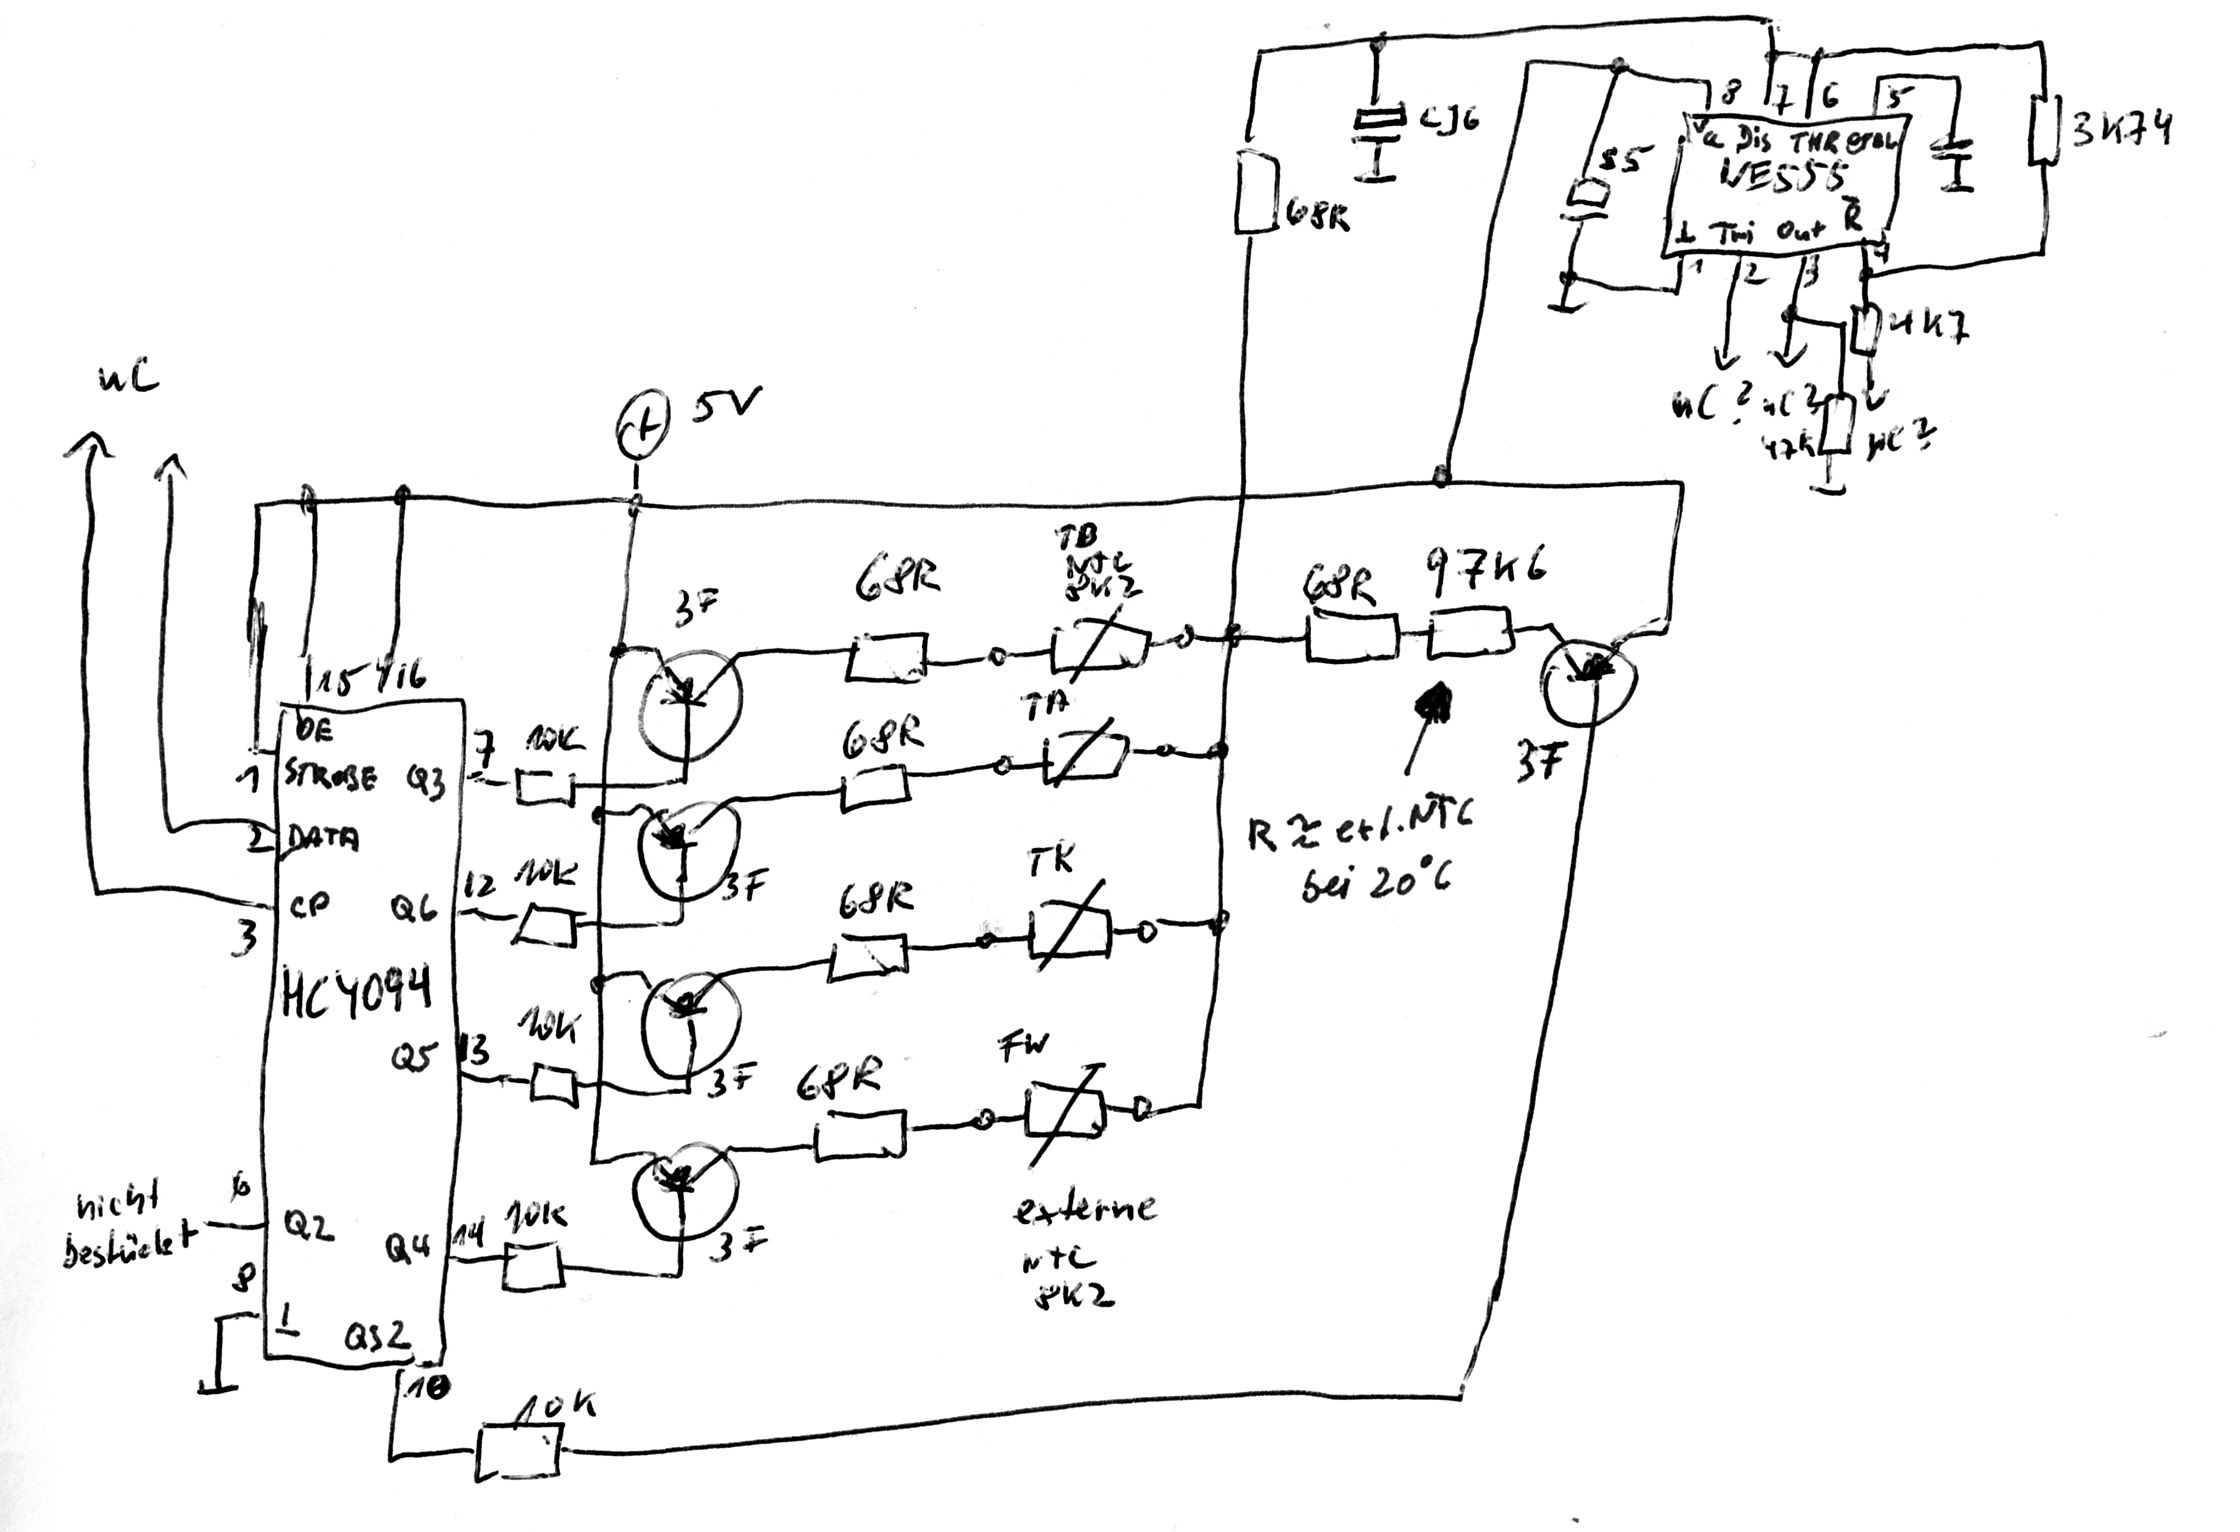 CJ6
68R
55
8 7 6 5
Dis THR
NE555
⊥ Tri Out R̅
1 2 3 4
3K74
4K7
uC? uC?
47K
uC?
uC
5V
15 16
OE
1
STROBE
2
DATA
3
CP
HC4094
Q3
7
10K
Q6
12
10K
Q5
13
10K
Q4
14
10K
nicht
bestückt
6
Q2
8
⊥
QS2
10
10K
3F
68R
TB
NTC
8K2
68R
97K6
3F
68R
TA
3F
R ≈ ext. NTC
bei 20°C
68R
TK
3F
68R
FW
3F
externe
NTC
8K2
3F